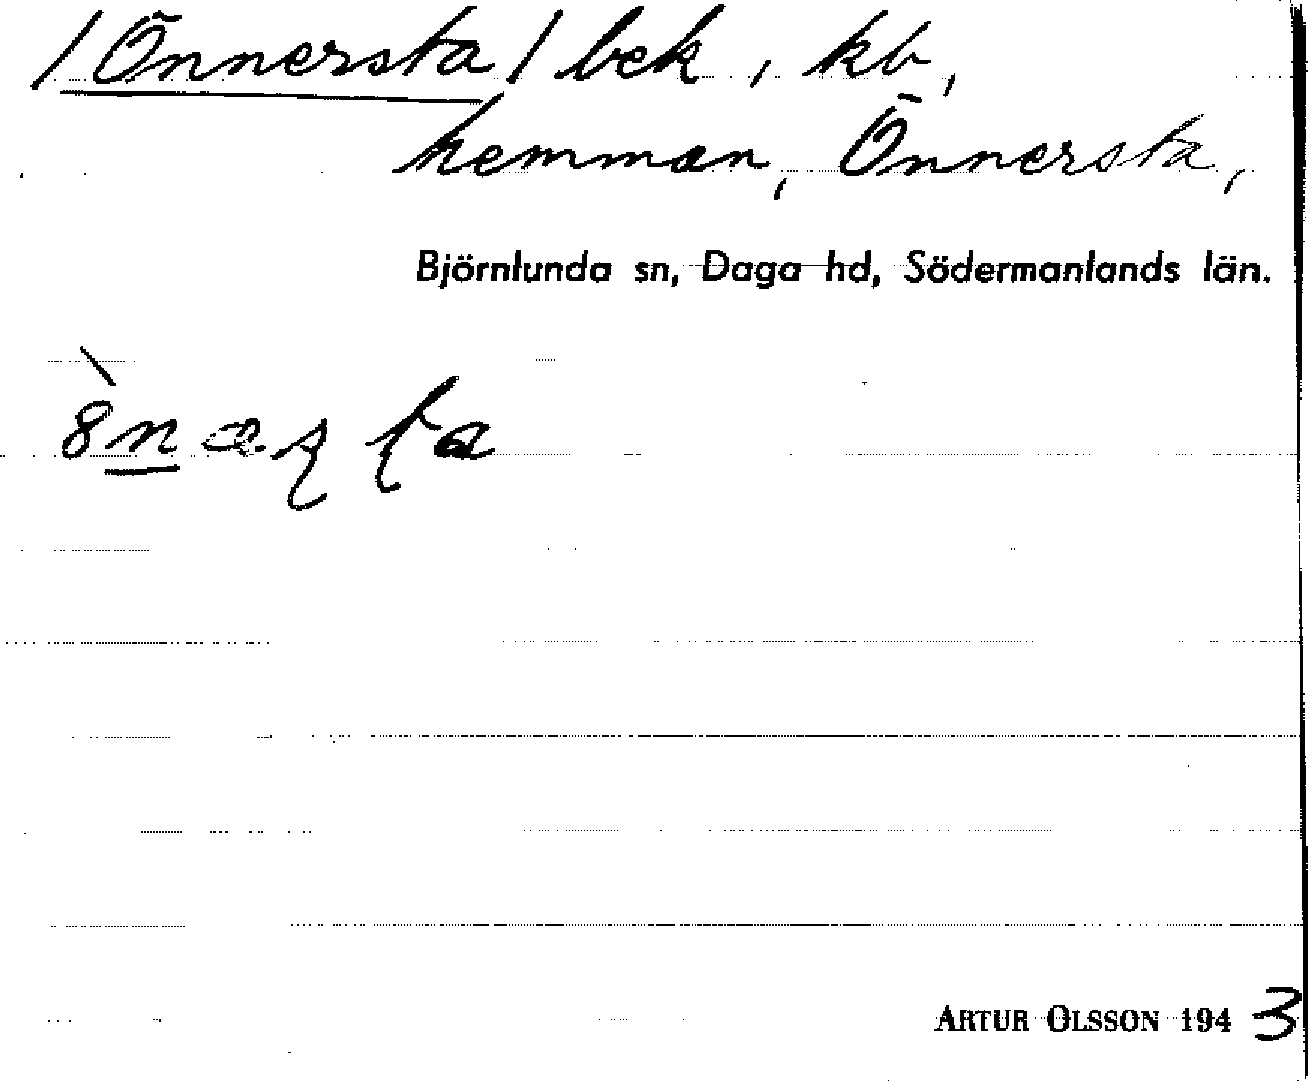 /Önnersta/ bek, kb,
hemman, Önnersta,
Björnlunda sn, Daga hd, Södermanlands län.
ARTUR OLSSON 1943